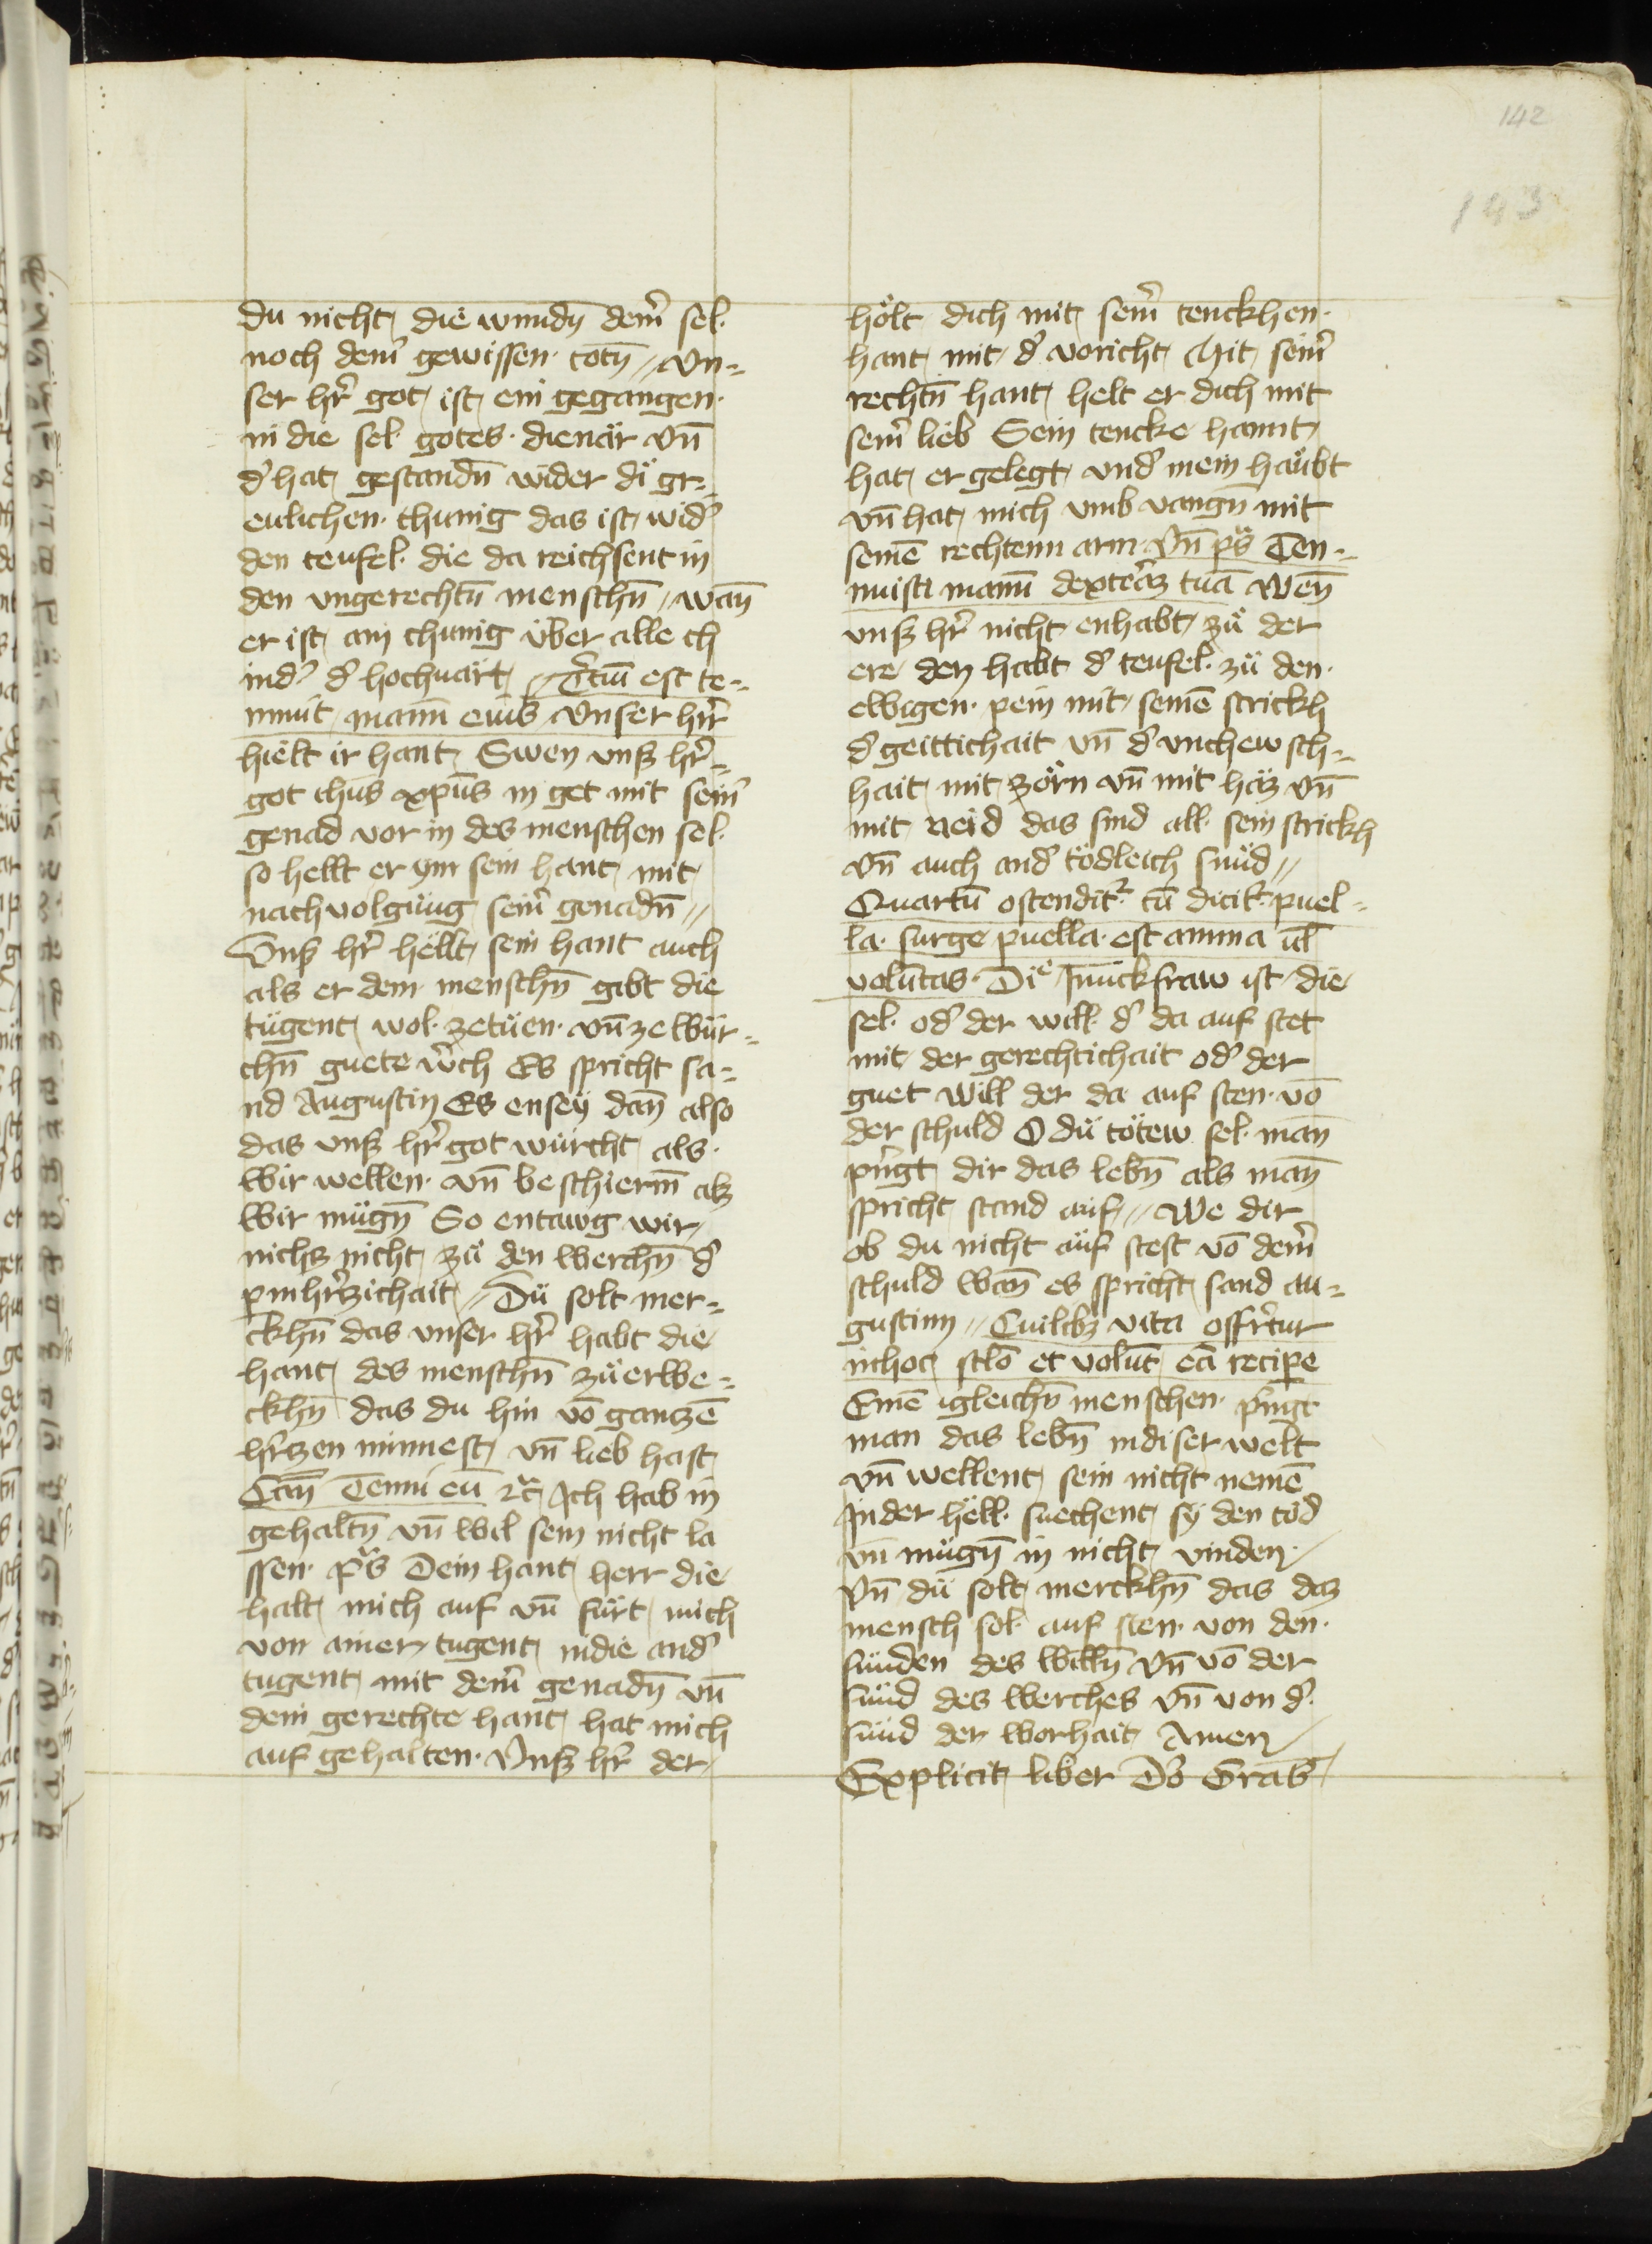 142
143
du nicht die wundn̄ dein̄ sel.
noch dein̄ gewissen. totn̄ // Vn=
ser hr̄ got ist ein gegangen.
in die sel. gotes. dienär vn̄
d' hat gestandn̄ wider di gr=
eulichen. chunig das ist wid'
den teufel. die da reichsent in
den vngerechtn̄ menschn̄ // wan̄
er ist ain chunig über alle ch
ind' d' hochuart // Tc̄iū est te=
nuit manū eius Vnser hr̄r
hielt ir hant Swen vnß hr̄=
got ihūs xpūs in get mit sein̄
genad vor in des menschen sel.
so hellt er ym sein hant mit
nachvolgüng sein̄ genadn̄ //
Vnß hr̄ hellt sein hant auch
als er dem menschn̄ gibt die
tügent wol. zetüen. vn̄ ze wür=
chn̄ guete w'ch Es spricht sa=
nd Augustin Es ensey dan̄ also
das vnß hr̄ got würcht als.
wir wellen. vn̄ beschierm̄ alz
wir mügn̄ So entawg wir
nichz nicht zü den werchn̄ d'
pmhr̄zichait // Dü solt mer=
ckhn̄ das vnser hr̄ habt die
hant des menschn̄ zü erwe=
ckhn̄ das du hin vō ganzē
hr̄tzen minnest vn̄ lieb hast
Can̄ Tenui eū ꝛc̄ Ich hab in
gehaltn̄ vn̄ wil sein nicht la
ssen. p̄s Dein hant herr die
halt mich auf vn̄ fürt mich
von ainer tugent in die and'
tugent mit dein̄ genadn̄ vn̄
dein gerechte hant hat mich
auf gehalten. Vnß hr̄ der
hölt dich mit sein̄ tenckhen.
hant mit d' voricht Mit sein̄
rechtn̄ hant helt er dich mit
sein̄ lieb Sein tencke hannt
hat er gelegt vnd' mein haübt
vn̄ hat mich vmb vangn̄ mit
seinē rechtenn arm Vn̄ p̄s Ten=
nuisti manū dexterāz tuā Wen̄
vnß hr̄ nicht enhabt zü der
ere den habt d' teufel. zü den.
ewigen. pein mit seinē strickh
d' geittichait vn̄ d' vnchewsch=
hait mit zörn vn̄ mit haz vn̄
mit neid das sind all. sein strickh
vn̄ auch and' tödleich sünd //
Quartū ostendit² cū dicit². puel=
la. surge puella. est anima ul̄
volūtas. Die Junckfraw ist die
sel. od' der will. d' da auf stet
mit der gerechtichait od' der
guet will der da auf sten. vō
der schuld O dü tötew sel. man̄
pn̄gt dir das lebn̄ als man̄
spricht stand auf // We dir
ob du nicht aüf stest vō dein̄
schuld wan̄ es spricht sand au=
gustinn // Cuilibz vita offr̄tur
in hoc sclō et volūt eā recipe
Einē igleichn̄ menschen. pringt
man das lebn̄ in diser welt
vn̄ wellent sein nicht nemē
In der hell. suechent sy den töd
vn̄ mügn̄ in nicht vinden
Vn̄ dü solt merckhn̄ das daz
mensch sol. auf sten. von den.
sünden des willn̄ vn̄ vō der
sünd des werches vn̄ von d'
sünd der worhait Amen
Explicit liber Do Grab